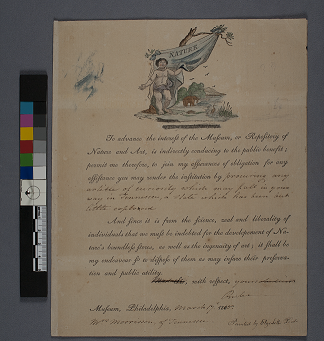 NATURE
To advance the interest of the Museum, or Repository of
Nature and Art, is indirectly conducing to the public benefit;
permit me therefore, to join my assurances of obligation for any
assistance you may render the institution by procuring any
articles of curiosity which may fall in your
way in Tennessee, a State which has been but
little explored.
And since it from the science, zeal and liberality of
individuals that we must be indebted for the developement of Na-
ture's boundless stores, as well as the ingenuity of art; it shall be
my endeavour so to dispose of them as may insure their preserva-
tion and public utility.
with respect, your
Museum, Philadelphia, March
Mrs Morrison, of Tennessee
Presented by Elizabeth